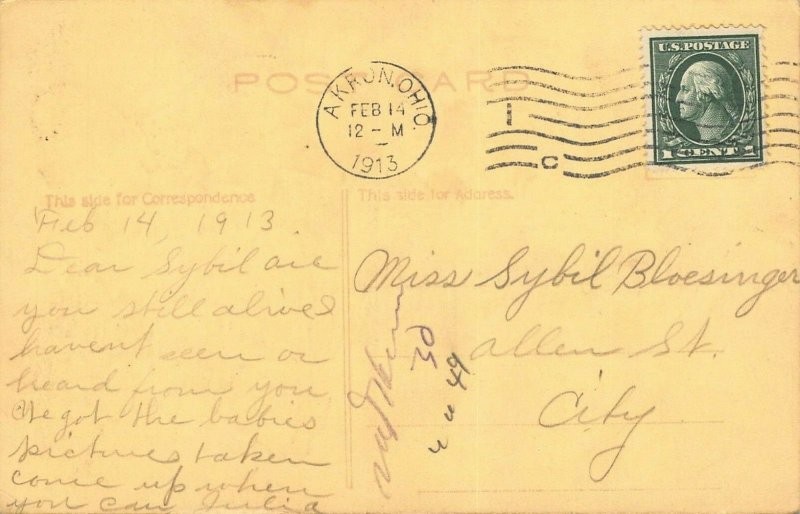 POST CARD
AKRON, OHIO.
FEB 14
12 - M
1913
1
C
U.S. POSTAGE
1 CENT 1
This side for Correspondence
This side for Address.
Feb 14, 1913.
Dear Sybil are
you still alive
havent seen or
heard from you
We got the babies
pictures taken
come up when
you can Julia
Miss Sybil Bloesinger
Allen St.
City
30
49